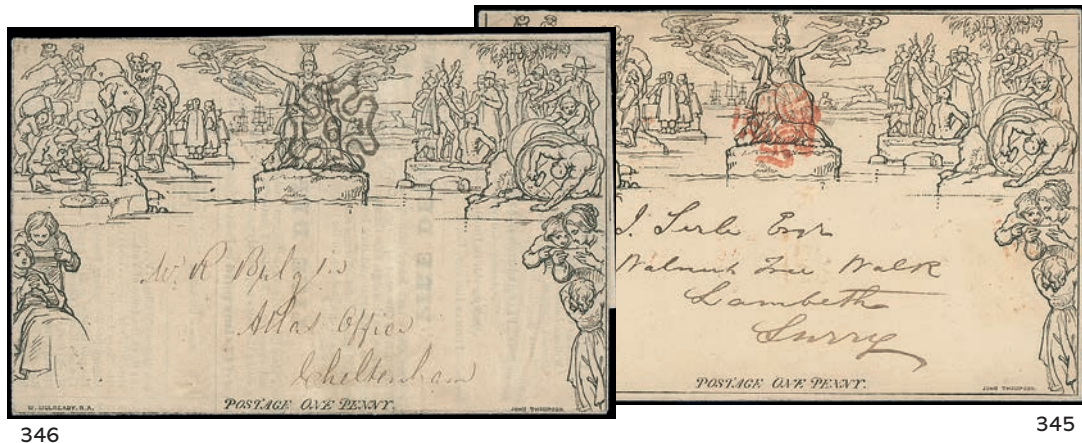 W. R. Bulgin
Atlas Office
Cheltenham
W. MULREADY. R.A.
POSTAGE ONE PENNY.
JOHN THOMPSON
346
J. Serle Esqr
Walnut Tree Walk
Lambeth
Surry
POSTAGE ONE PENNY.
JOHN THOMPSON
345